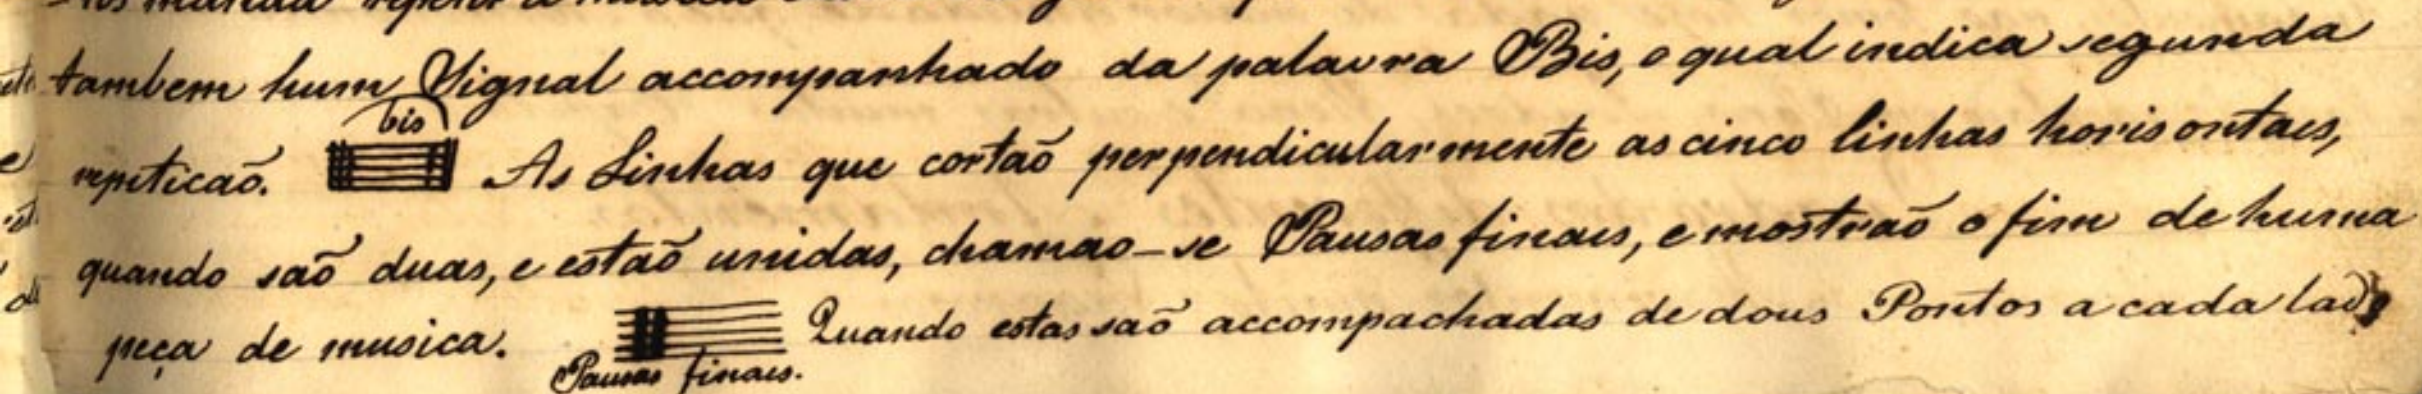 tambem hum Signal accompanhado da palavra Bis, o qual indica segunda
bis
repeticaõ. As Linhas que cortaõ perpendicularmente as cinco linhas horisontaes,
quando saõ duas, e estaõ unidas, chamao-se Pausas finaes, e mostraõ o fim de huma
peça de musica. Quando estas saõ accompachadas de dous Pontos a cada lado
Pausas finaes.